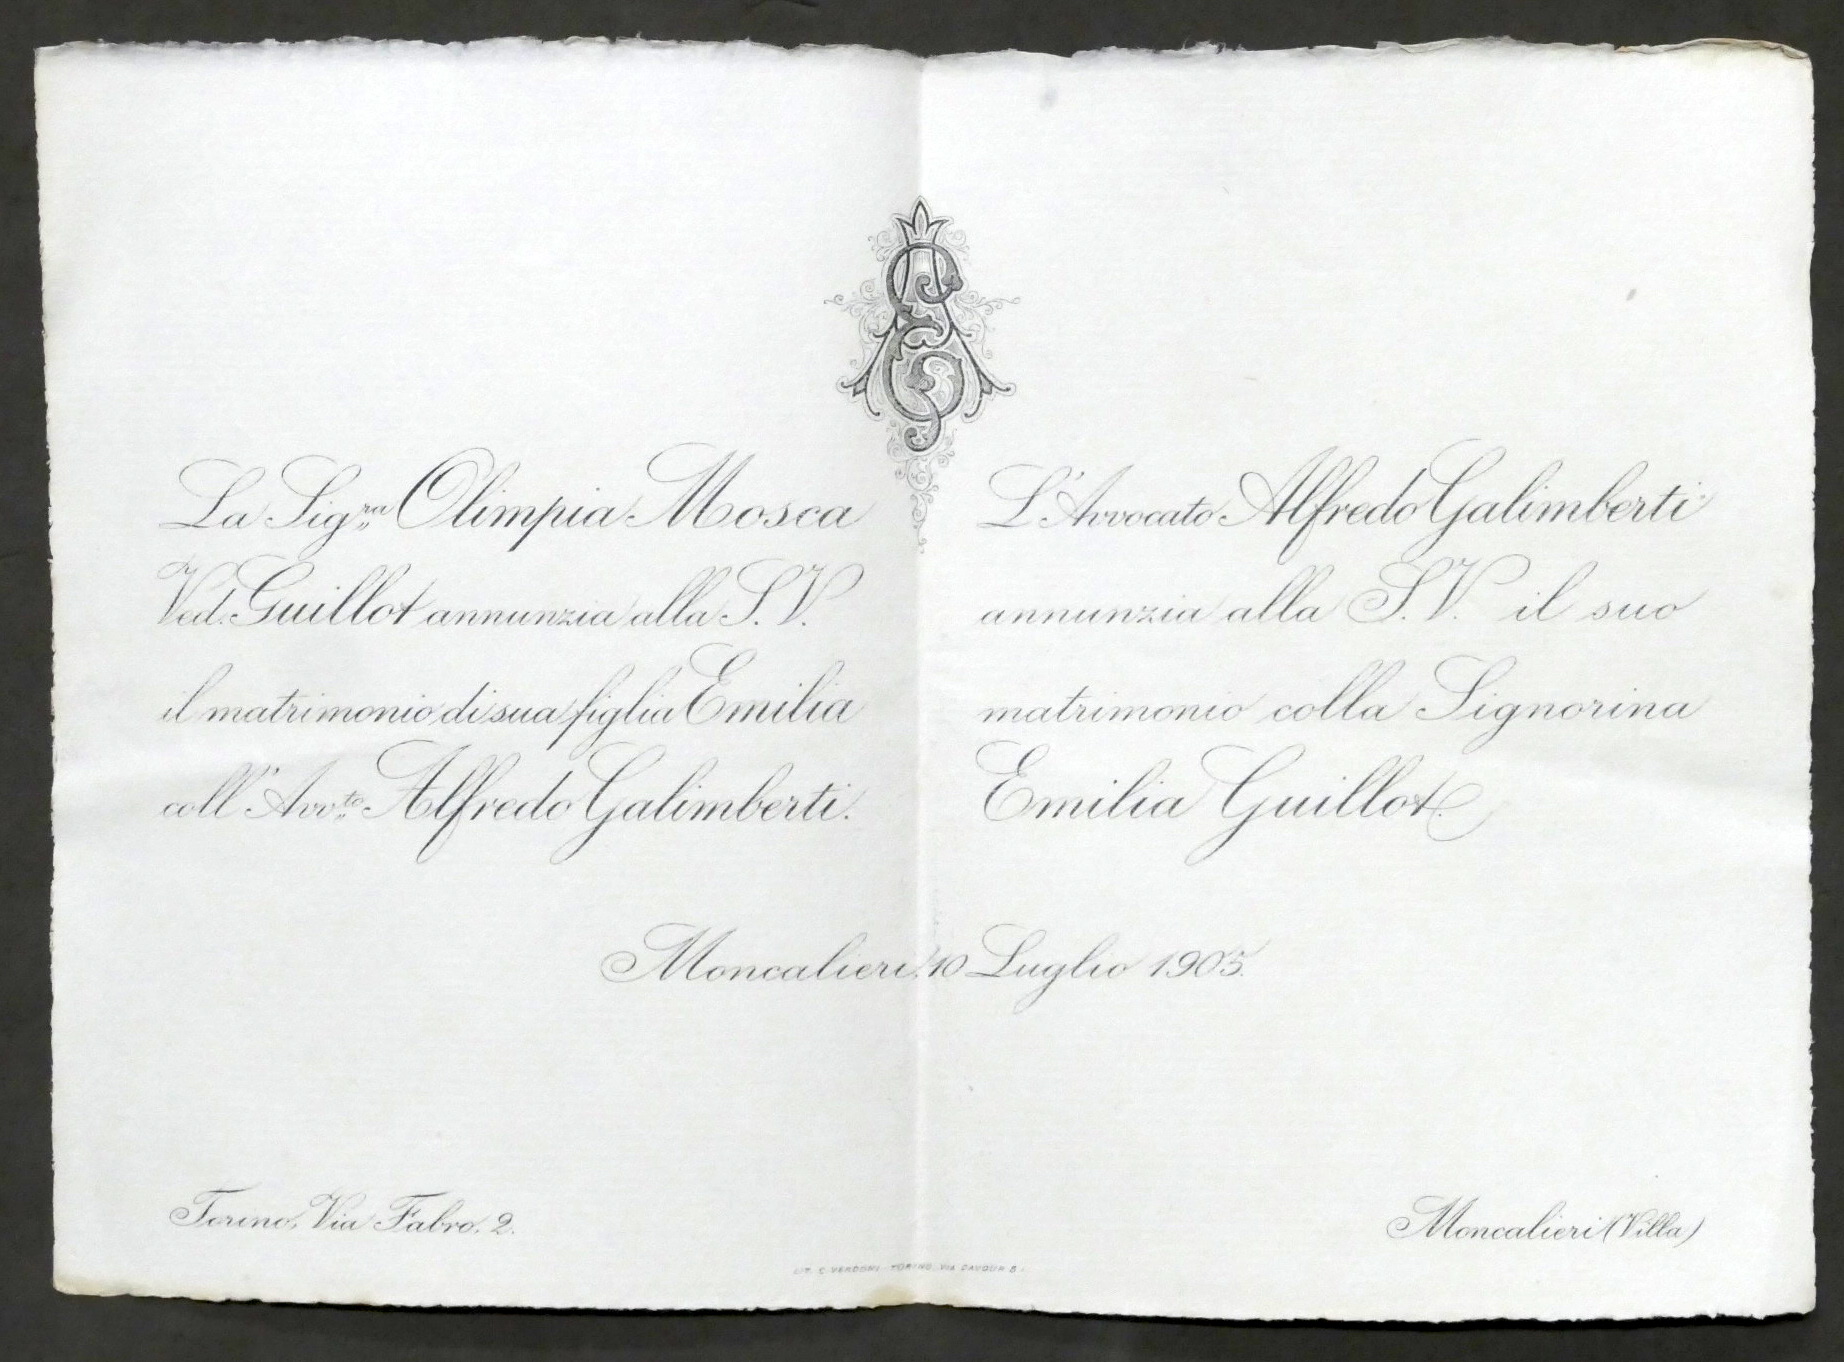 La Sig.ra Olimpia Mosca
Ved. Guillot annunzia alla S. V.
il matrimonio di sua figlia Emilia
coll'Avv.to Alfredo Galimberti.
L'Avvocato Alfredo Galimberti
annunzia alla S. V. il suo
matrimonio colla Signorina
Emilia Guillot.
Moncalieri, 10 Luglio 1905.
Torino, Via Fabro, 2.
Moncalieri (Villa)
LIT. C. VERDONI - TORINO, VIA CAVOUR 8.